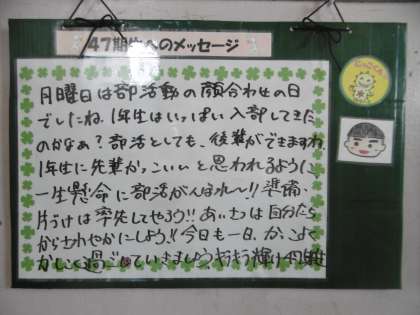 47期生へのメッセージ
月曜日は部活動の顔合わせの日
でしたね。1年生はいっぱい入部してきた
のかなぁ？部活としても、後輩ができますね。
1年生に先輩かっこいいと思われるように
一生懸命に部活がんばれ〜!!準備・
片づけは率先してやろう!!あいさつは自分たち
からさわやかにしよう!!今日も一日、かっこよく
かしこく過ごしていきましょう。キラキラ輝け47期生